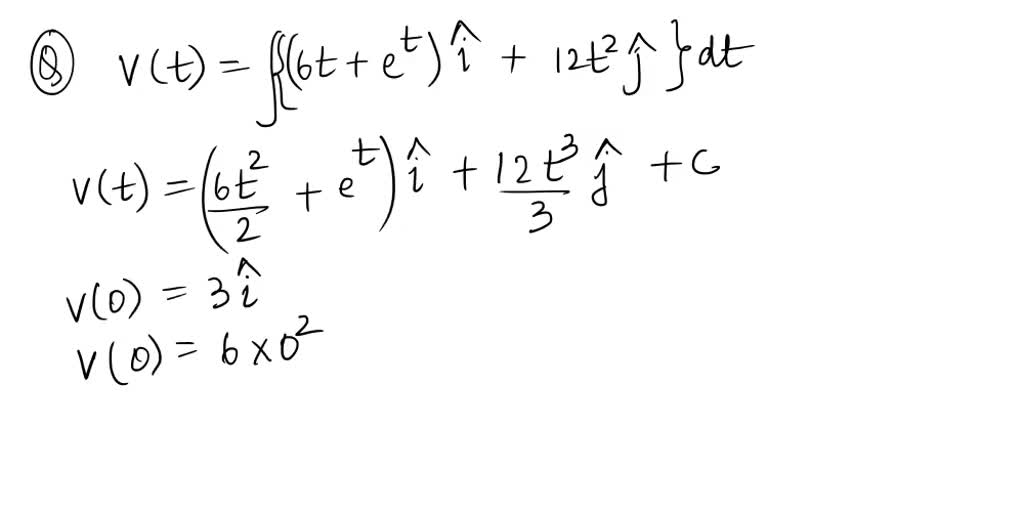 Q v(t) = ∫{(6t + e^t) î + 12t² ĵ } dt
v(t) = (6t²/2 + e^t) î + 12t³/3 ĵ + C
v(0) = 3 î
v(0) = 6 × 0²